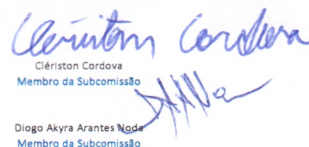 Clériston Cordova
Clériston Cordova
Membro da Subcomissão
Diogo Akyra Arantes Noda
Membro da Subcomissão